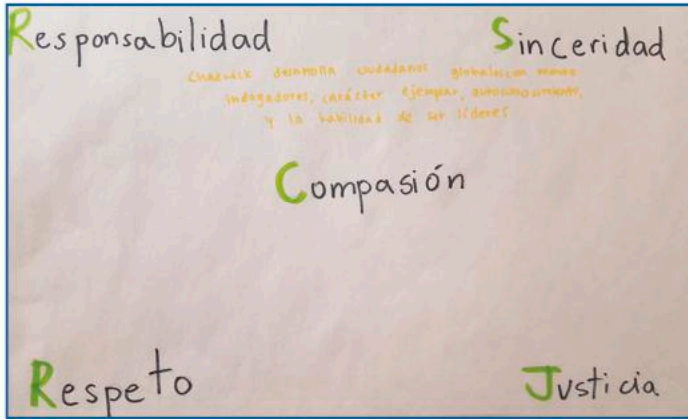 Responsabilidad Sinceridad
Chadwick desarrolla ciudadanos globales con mentes
indagadores, carácter ejemplar, autoconocimiento,
y la habilidad de ser líderes
Compasión
Respeto Justicia